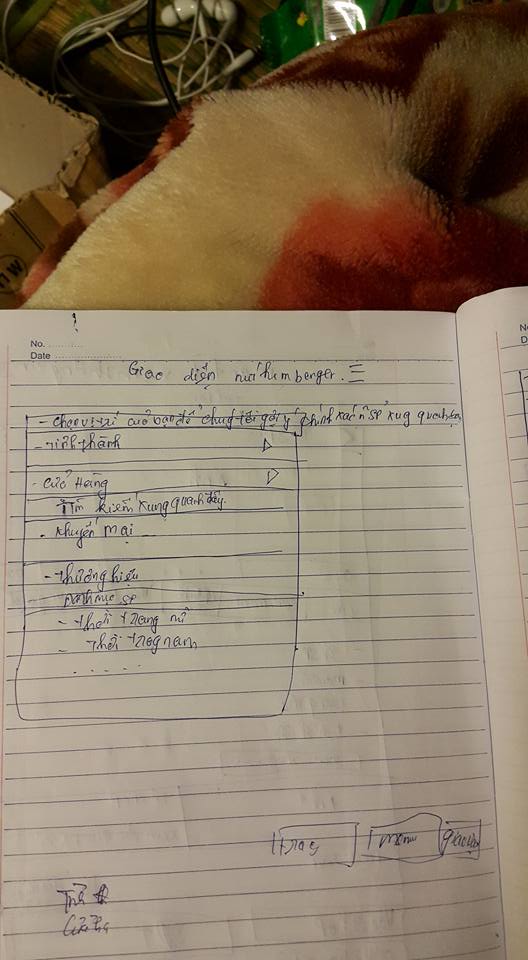 No. ..........
Date ......................
Giao diện nút humberger. ☰
- chọn vị trí của bạn để chúng tôi gợi ý chính xác nhất SP xung quanh bạn
- Tỉnh thành ▷
- Cửa Hàng ▷
Tìm kiếm xung quanh đây.
- Khuyến mại
- thương hiệu
Danh mục SP
- thời trang nữ
- thời trang nam
. . . . .
1 trag 1 menu giao diện
No
D